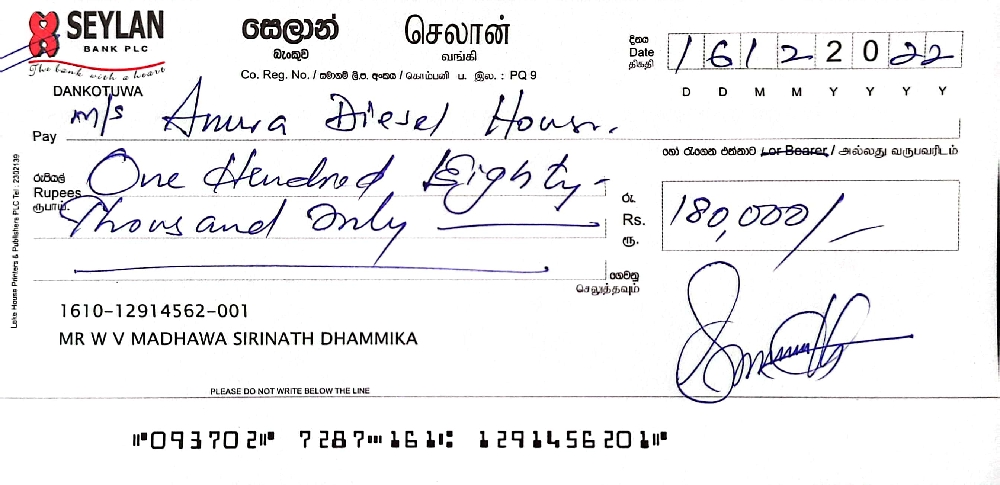 SEYLAN
BANK PLC
The bank with a heart
DANKOTUWA
සෙලාන්
බැංකුව
செலான்
வங்கி
Co. Reg. No. / සමාගම් ලි.ප. අංකය / கொம்பனி ப. இல. : PQ 9
දිනය
Date
திகதி
16122022
D D M M Y Y Y Y
Pay M/s Anura Diesel House.
හෝ රැගෙන එන්නාට / or Bearer / அல்லது வருபவரிடம்
රුපියල්
Rupees
ரூபாய்
One Hundred Eighty
Thousand Only
රු.
Rs.
ரூ.
180,000/-
ගෙවනු
செலுத்தவும்
1610-12914562-001
MR W V MADHAWA SIRINATH DHAMMIKA
PLEASE DO NOT WRITE BELOW THE LINE
Lake House Printers & Publishers PLC Tel : 2302139
⑈093702⑈ 7287⑉161⑆ 1291456201⑈